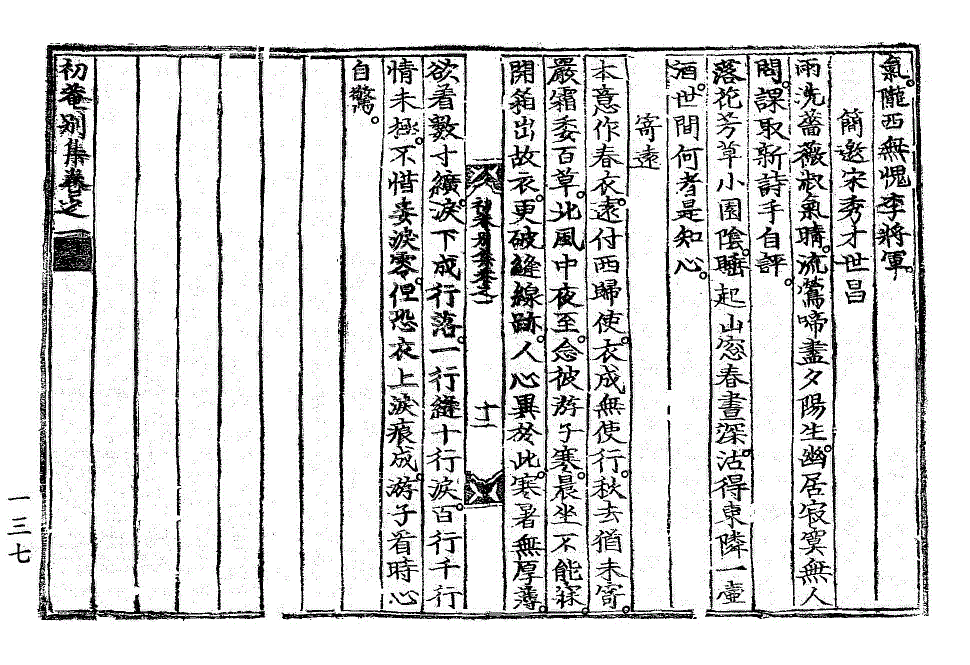 氣。隴西無愧李將軍。
簡邀宋秀才世昌
雨洗薔薇淑氣晴。流鶯啼盡夕陽生。幽居寂寞無人
問。課取新詩手自評。
落花芳草小園陰。睡起山窓春晝深。沽得東隣一壺
酒。世間何者是知心。
寄遠
本意作春衣。遠付西歸使。衣成無使行。秋去猶未寄。
嚴霜委百草。北風中夜至。念彼游子寒。晨坐不能寐。
開箱出故衣。更破縫線跡。人心異於此。寒暑無厚薄。
初菴別集卷之一
十二
欲着數寸纊。淚下成行落。一行縫十行淚。百行千行
情未極。不惜妾淚零。但恐衣上淚痕成。游子着時心
自驚。
初菴別集卷之一
一三七